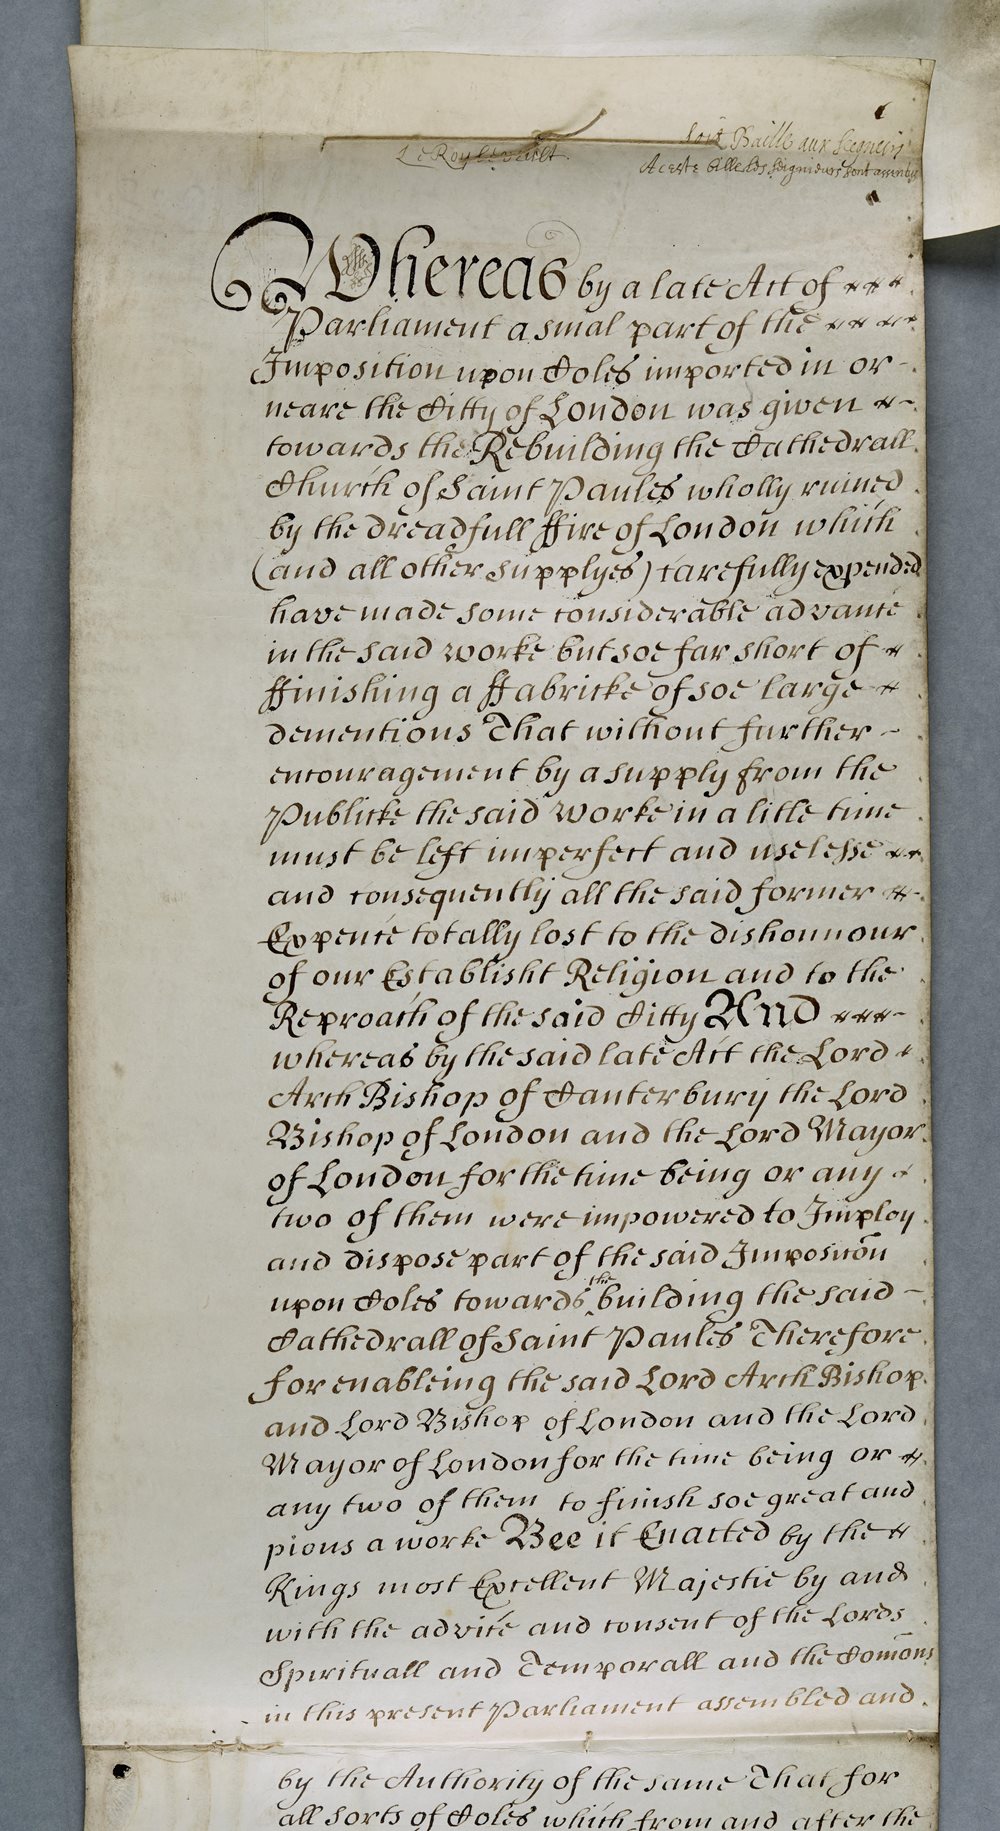 Soit Baille aux Seigneurs
Le Roy le veult
A ceste Bille les Seigneurs sont assentus
Whereas by a late Act of
Parliament a smal part of the
Imposition upon Coles imported in or
neare the Citty of London was given
towards the Rebuilding the Cathedrall
Church of Saint Paules wholly ruined
by the dreadfull ffire of London which
(and all other Supplyes) carefully expended
have made some considerable advance
in the said worke but soe far short of
ffinishing a ffabricke of soe large
dementions That without further
encouragement by a supply from the
Publicke the said worke in a litle time
must be left imperfect and uselesse
and consequently all the said former
Expence totally lost to the dishonnour
of our Establisht Religion and to the
Reproach of the said Citty And
whereas by the said late Act the Lord
Arch Bishop of Canterbury the Lord
Bishop of London and the Lord Mayor
of London for the time being or any
two of them were impowered to Imploy
and dispose part of the said Imposicõn
upon Coles towards the building the said
Cathedrall of Saint Paules Therefore
for enableing the said Lord Arch Bishop
and Lord Bishop of London and the Lord
Mayor of London for the time being or
any two of them to finish soe great and
pious a worke Bee it Enacted by the
Kings most Excellent Majestie by and
with the advice and consent of the Lords
Spirituall and Temporall and the Com̃ons
in this present Parliament assembled and
by the Authority of the same That for
all sorts of Coles which from and after the